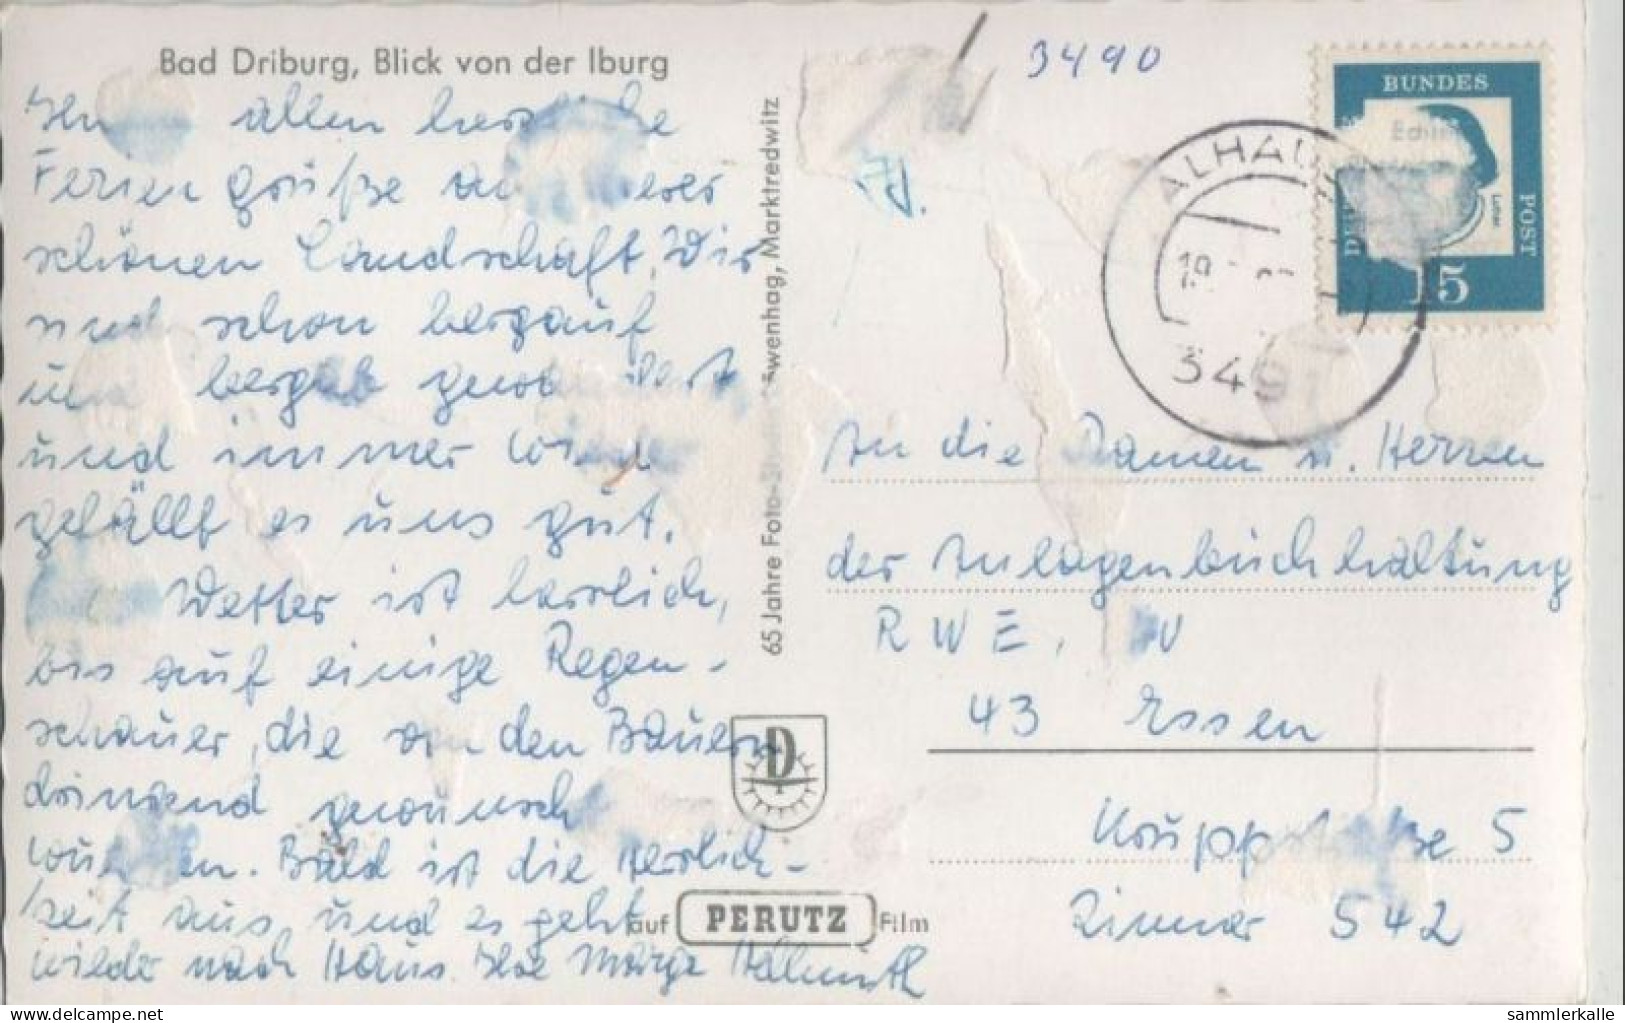 Bad Driburg, Blick von der Iburg
allen herzliche
Feriengrüße aus
schönen Landschaft. Wir
sind schon bergauf
und bergab gewandert
und immer wieder
gefällt es uns gut.
Wetter ist herrlich,
bis auf einige Regen-
schauer, die von den Bauern
dringend gewünscht
wurden. Bald ist die Herrlich-
keit aus, und es geht
wieder nach Haus. Ihre Marga Hellmuth
65 Jahre Foto- Löwenhag, Marktredwitz
D
auf PERUTZ Film
3490
BUNDES
POST
Luther
15
ALHAU
19
349
An die Damen u. Herren
der Anlagenbuchhaltung
RWE,
43 Essen
Kruppstraße 5
Zimmer 542
sammlerkalle
www.delcampe.net